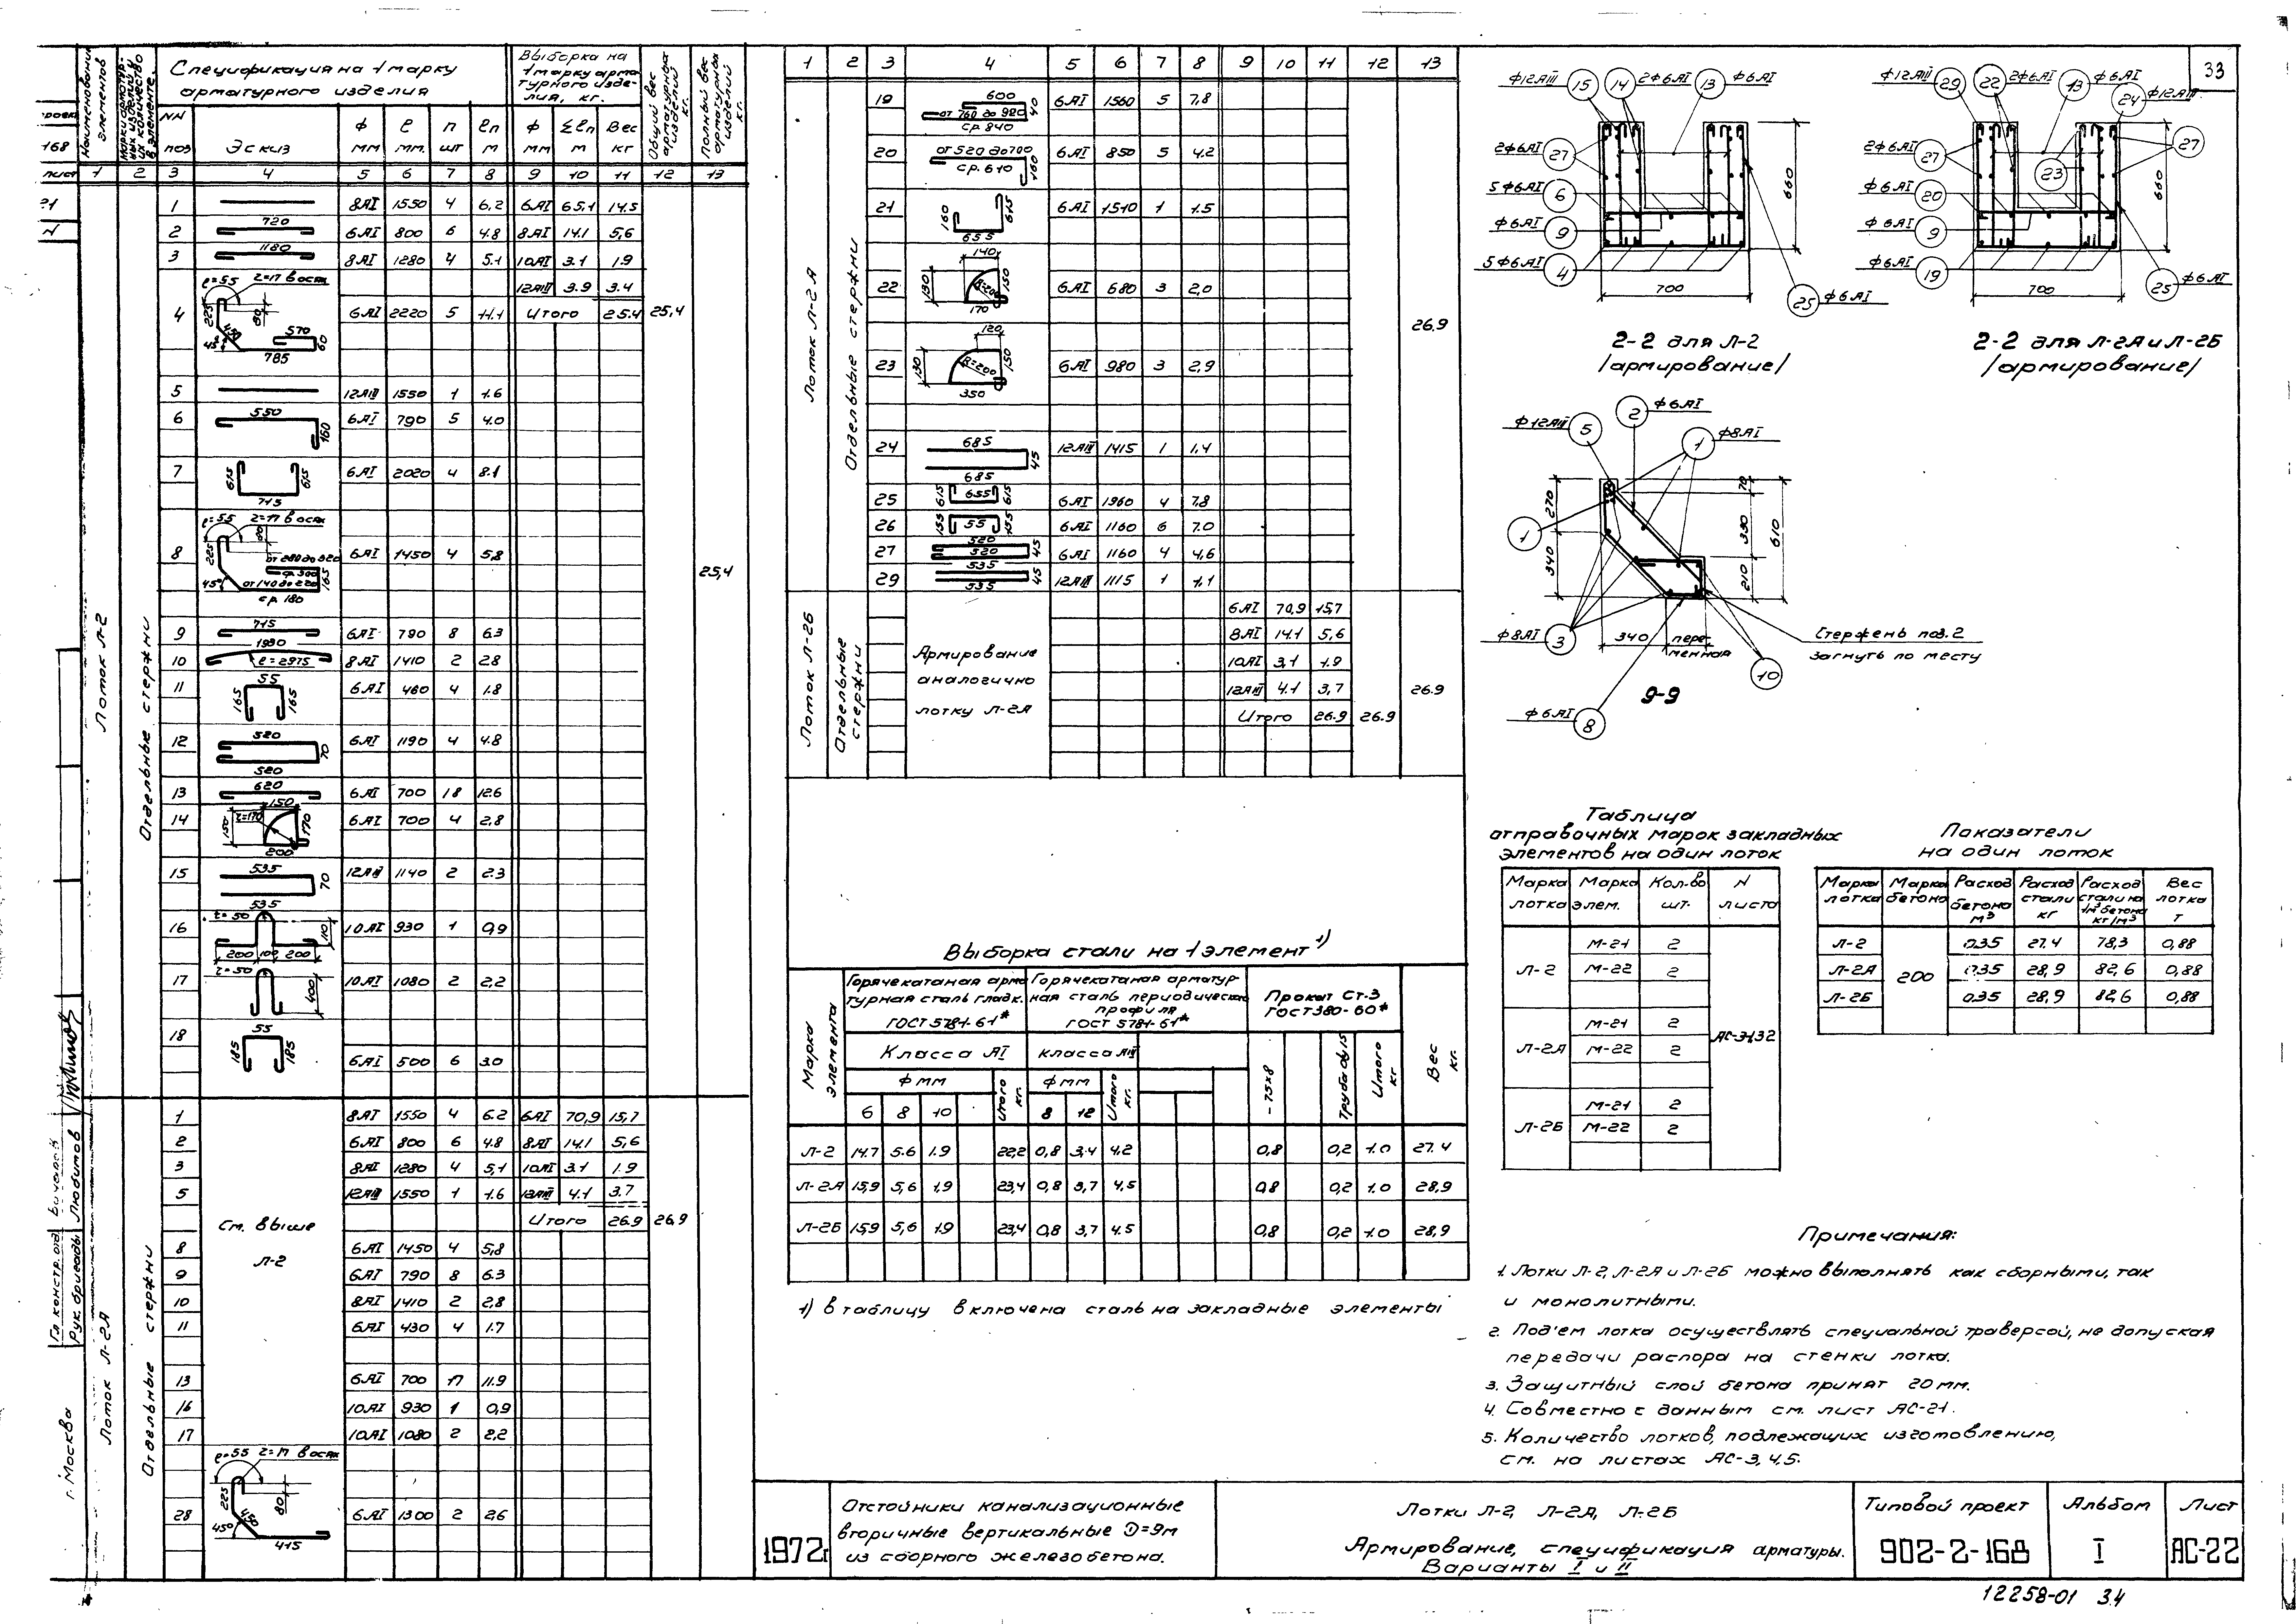 33
Наименование элементов
Марки арматурных изделий и их количество в элементе.
Спецификация на 1 марку арматурного изделия
Выборка на 1 марку арматурного изделия, кг.
Общий вес арматурных изделий кг.
Полный вес арматурных изделий кг.
NN поз Эскиз ф мм ℓ мм. n шт ℓn м ф мм Σℓn м Вес кг
1 2 3 4 5 6 7 8 9 10 11 12 13
Лоток Л-2
Отдельные стержни
1 8АI 1550 4 6,2 6АI 65.1 14.5
2 720 6АI 800 6 4.8 8АI 14.1 5,6
3 1180 8АI 1280 4 5.1 10АI 3.1 1.9
12АIII 3.9 3.4
4 6АI 2220 5 11.1 Итого 25.4 25,4
ℓ=55 r=17 в осях 225 450 80 570 60 45° 785
5 12АIII 1550 1 1.6
6 550 160 6АI 790 5 4.0
7 615 615 715 6АI 2020 4 8.1
8 6АI 1450 4 5,8
ℓ=55 r=17 в осях 80 225 от 280 до 320 ср.300 от 140 до 220 165 45° ср. 180
25,4
9 715 6АI 790 8 6.3
10 1930 ℓ=2975 8АI 1410 2 2.8
11 55 165 165 6АI 460 4 1.8
12 520 70 520 6АI 1190 4 4.8
13 620 6АI 700 18 12.6
14 150 150 r=170 170 200 6АI 700 4 2,8
15 535 70 535 12АIII 1140 2 2.3
16 r=50 110 200 100 200 10АI 930 1 0,9
17 r=50 400 10АI 1080 2 2,2
18 55 185 185 6АI 500 6 3.0
Лоток Л-2А
Отдельные стержни
См. выше Л-2
1 8АI 1550 4 6.2 6АI 70,9 15,7
2 6АI 800 6 4.8 8АI 14.1 5,6
3 8АI 1280 4 5,1 10АI 3.1 1.9
5 12АIII 1550 1 1.6 12АIII 4.1 3.7
Итого 26.9 26.9
8 6АI 1450 4 5,8
9 6АI 790 8 6.3
10 8АI 1410 2 2,8
11 6АI 430 4 1.7
13 6АI 700 17 11.9
16 10АI 930 1 0,9
17 10АI 1080 2 2,2
ℓ=55 r=17 в осях 225 450 80 45° 415
28 6АI 1300 2 2.6
1 2 3 4 5 6 7 8 9 10 11 12 13
Лоток Л-2А
Отдельные стержни
19 600 от 760 до 920 40 ср. 840 6АI 1560 5 7,8
20 от 520 до 700 ср. 610 160 6АI 850 5 4.2
21 160 615 655 6АI 1510 1 1.5
22 140 130 R=200 150 170 6АI 680 3 2,0
26.9
23 120 130 R=200 150 350 6АI 980 3 2,9
24 685 45 685 12АIII 1415 1 1,4
25 615 655 615 6АI 1960 4 7,8
26 155 55 155 6АI 1160 6 7.0
27 520 520 45 6АI 1160 4 4,6
29 535 45 535 12АIII 1115 1 1,1
Лоток Л-2Б
Отдельные стержни
Армирование аналогично лотку Л-2А
6АI 70,9 15,7
8АI 14.1 5,6
10АI 3,1 1.9
12АIII 4.1 3,7 26.9
Итого 26.9 26.9
Выборка стали на 1 элемент 1)
Марка элемента
Горячекатаная арматурная сталь гладк. ГОСТ 5781-61*
Горячекатаная арматурная сталь периодическ. профиля ГОСТ 5781-61*
Прокат Ст.3 ГОСТ 380-60*
Вес кг.
Класса АI класса АIII
ф мм Итого кг. ф мм Итого кг. -75х8 Труба Итого кг
6 8 10 8 12
Л-2 14.7 5.6 1.9 22,2 0,8 3.4 4.2 0,8 0,2 1.0 27.4
Л-2А 15,9 5,6 1,9 23,4 0,8 3,7 4,5 0,8 0,2 1.0 28,9
Л-2Б 15,9 5,6 1.9 23,4 0,8 3,7 4.5 0,8 0,2 1.0 28,9
1) В таблицу включена сталь на закладные элементы
ф12АIII 15 14 2ф6АI 13 ф6АI
2ф6АI 27
5ф6АI 6
ф6АI 9
5ф6АI 4
25 ф6АI
660
700
2-2 для Л-2
/армирование/
ф12АIII 29 22 2ф6АI 13 ф6АI 24 ф12АIII
2ф6АI 27 27
23
ф6АI 20
ф6АI 9
ф6АI 19
25 ф6АI
660
700
2-2 для Л-2А и Л-2Б
/армирование/
ф12АIII 5 2 ф6АI 1 ф8АI
1
270 340
70 330 210 610
ф8АI 3
340 переменная
Стержень поз. 2 загнуть по месту
10
ф6АI 8
9-9
Таблица
отправочных марок закладных
элементов на один лоток
Марка лотка Марка элем. Кол-во шт. N листа
Л-2 М-21 2
М-22 2
Л-2А М-21 2
М-22 2
Л-2Б М-21 2
М-22 2
Показатели
на один лоток
Марка лотка Марка бетона Расход бетона м³ Расход стали кг Расход стали на 1м³ бетона кг/м³ Вес лотка т
Л-2 200 0.35 27.4 78,3 0,88
Л-2А 0.35 28,9 82,6 0,88
Л-2Б 0.35 28,9 82,6 0,88
Примечания:
1. Лотки Л-2, Л-2А и Л-2Б можно выполнять как сборными, так
и монолитными.
2. Под'ем лотка осуществлять специальной траверсой, не допуская
передачи распора на стенки лотка.
3. Защитный слой бетона принят 20 мм.
4. Совместно с данным см. лист АС-21.
5. Количество лотков, подлежащих изготовлению,
см. на листах АС-3,4,5.
1972г
Отстойники канализационные
вторичные вертикальные D=9м
из сборного железобетона.
Лотки Л-2, Л-2А, Л-2Б
Армирование, спецификация арматуры.
Варианты I и II
Типовой проект
902-2-168
Альбом
I
Лист
АС-22
12258-01 34
Гл. констр. отд.
Рук. бригады Любитов
г. Москва
168
лист